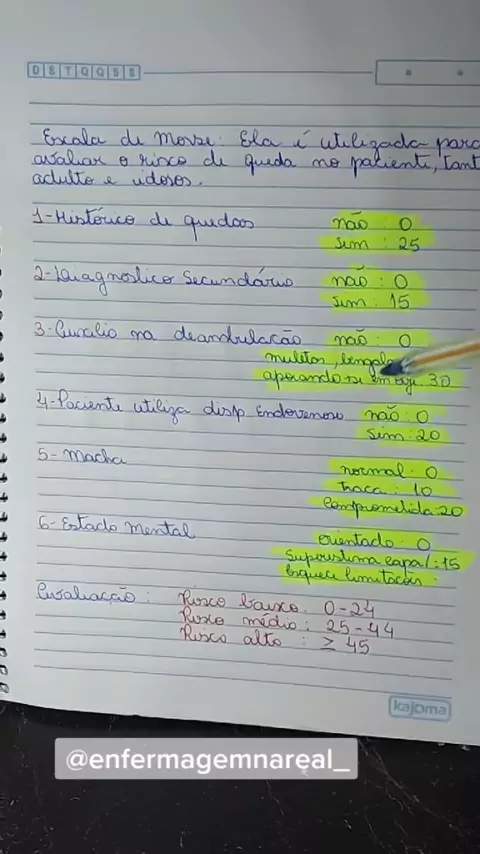 D S T Q Q S S
Escala de Morse: Ela é utilizada para
avaliar o risco de queda no paciente, tant
adulto e idosos.
1-Histórico de quedas não : 0
sim : 25
2-Diagnostico Secundário não : 0
sim : 15
3-Auxilio na deambulação não : 0
muletas, bengala
apoiando-se em 30
4-Paciente utiliza disp Endovenoso não : 0
sim : 20
5-Macha normal : 0
fraca : 10
Comprometida : 20
6-Estado Mental orientado : 0
Superestima capa/ : 15
Esquece limitações :
Avaliação : Risco baixo : 0-24
Risco médio : 25-44
Risco alto : ≥ 45
kajoma
@enfermagemnareal_